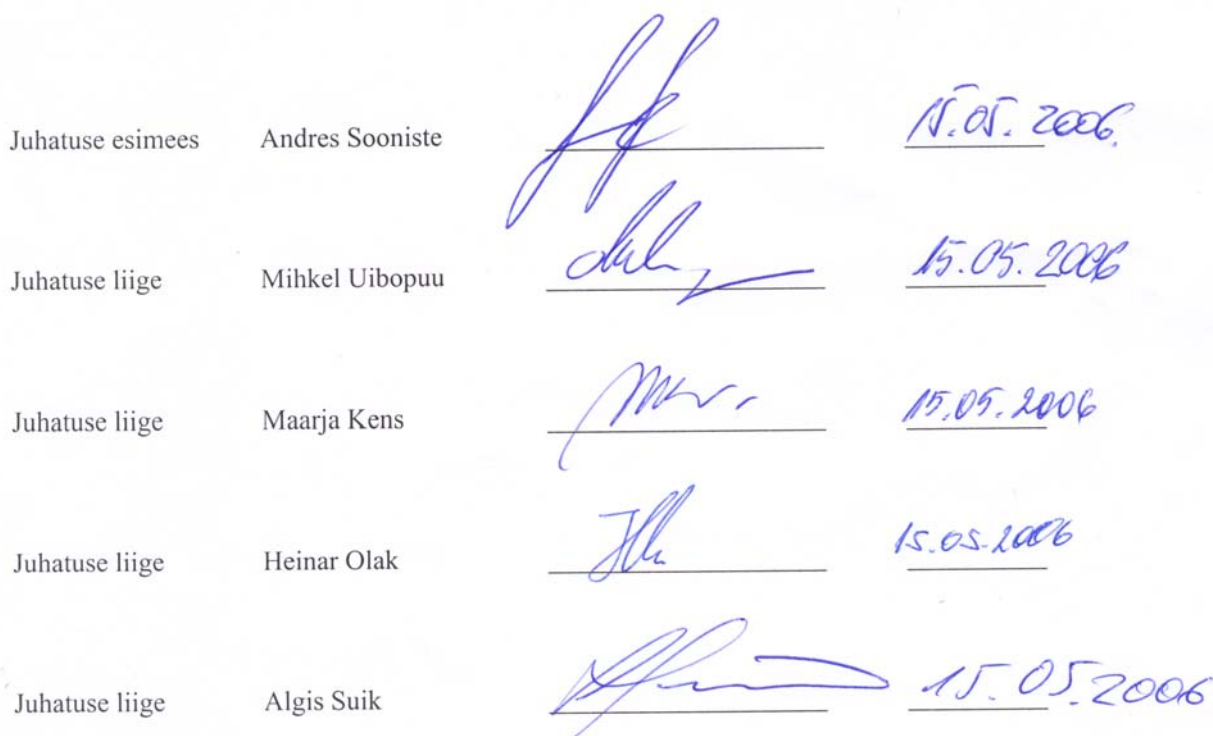 Juhatuse esimees Andres Sooniste 15.05.2006.
Juhatuse liige Mihkel Uibopuu 15.05.2006
Juhatuse liige Maarja Kens 15.05.2006
Juhatuse liige Heinar Olak 15.05.2006
Juhatuse liige Algis Suik 15.05.2006